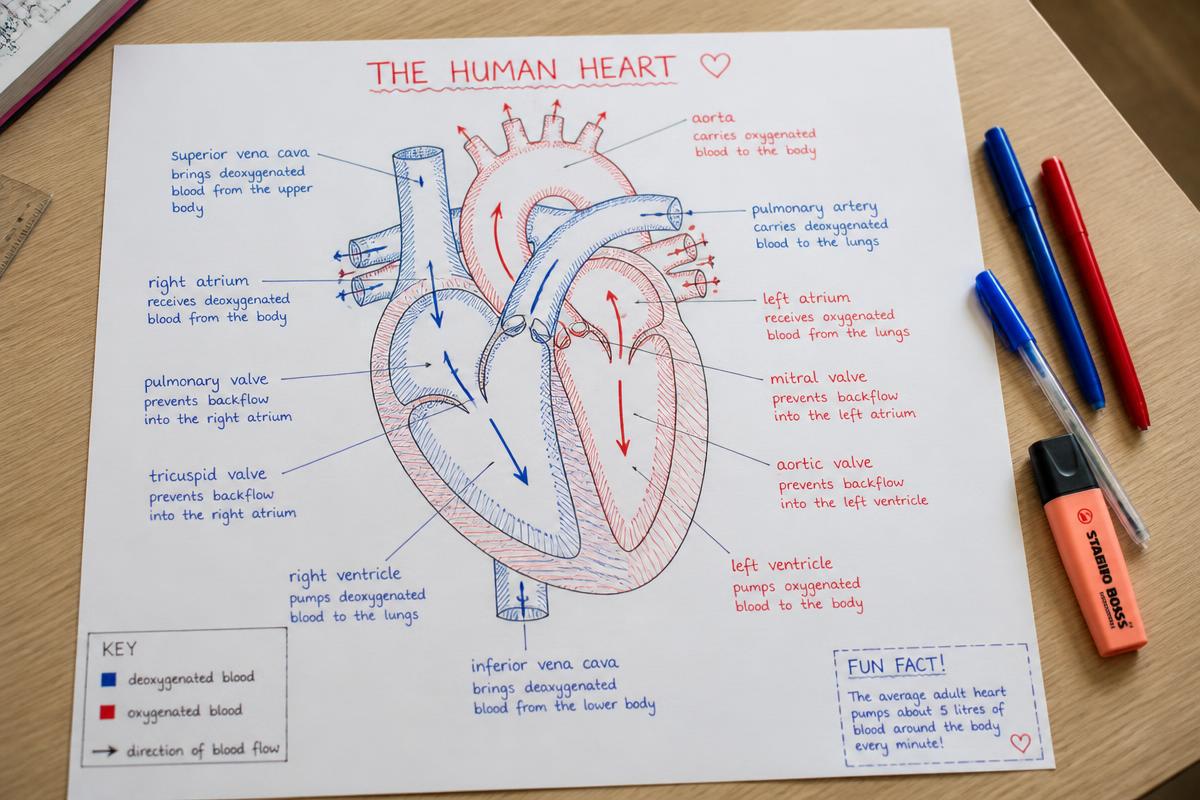 THE HUMAN HEART
superior vena cava
brings deoxygenated
blood from the upper
body
right atrium
receives deoxygenated
blood from the body
pulmonary valve
prevents backflow
into the right atrium
tricuspid valve
prevents backflow
into the right atrium
right ventricle
pumps deoxygenated
blood to the lungs
inferior vena cava
brings deaxygenated
blood from the lower body
aorta
carries oxygenated
blood to the body
pulmonary artery
carries deoxygenated
blood to the lungs
left atrium
receives oxygenated
blood from the lungs
mitral valve
prevents backflow
into the left atrium
aortic valve
prevents backflow
into the left ventricle
left ventricle
pumps oxygenated
blood to the body
KEY
deoxygenated blood
oxygenated blood
direction of blood flow
FUN FACT!
The average adult heart
pumps about 5 litres of
blood around the body
every minute!
STABILO BOSS